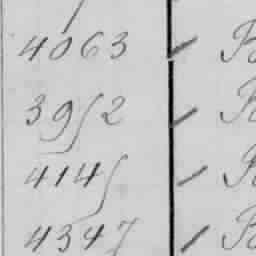 4063
3952
4145
4347